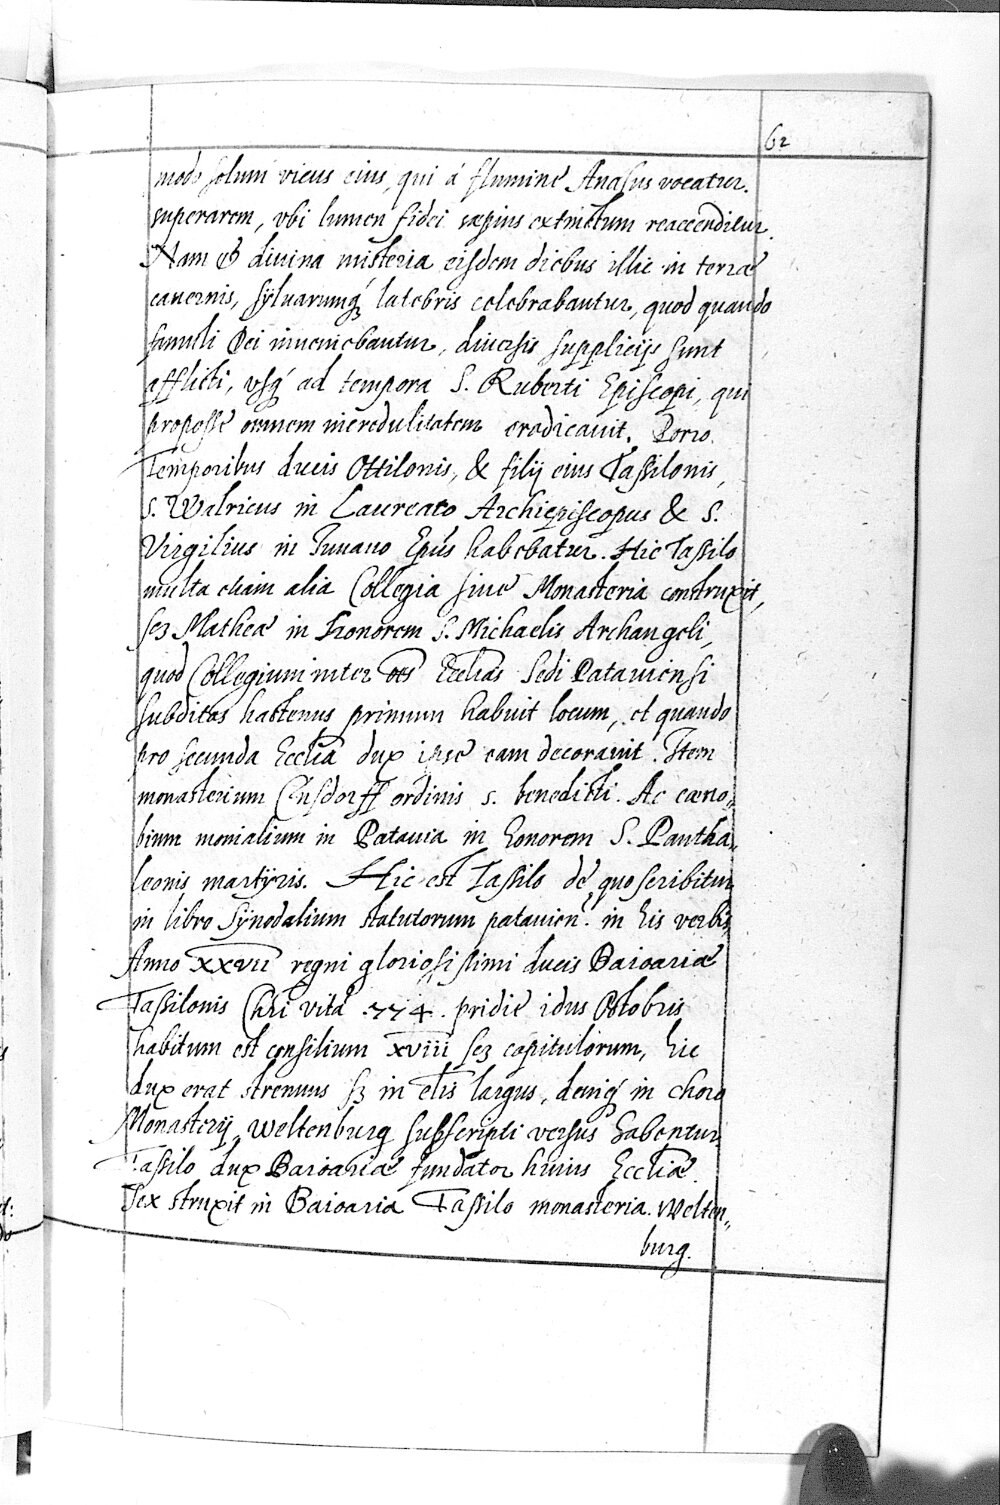 62
modo solum vicus eius, qui á flumine Anasus vocatur.
superarem, vbi lumen fidei sæpius extinctum reaccenditur.
Nam & diuina misteria eisdem diebus illic in terræ
cauernis, sÿluarumq́ latebris celebrabantur, quod quando
famuli Dei inueniebantur, diuersis supplicijs sunt
afflicti, vsq́ ad tempora S. Ruberti Episcopi, qui
proposse omnem incredulitatem eradicauit. Porro
Temporibus ducis Ottilonis, & filij eius Tassilonis,
S. Walricus in Laureaco Archiepiscopus & S.
Virgilius in Iuuauo Epús habebatur. Hic Tassilo
multa etiam alia Collegia siue Monasteria construxit,
sez Matheæ in honorem S. Michaelis Archangeli,
quod Collegium inter oēs Ecclīas Sedi Patauiensi
subditas hactenus primum habuit locum, et quando
pro secunda Ecclīa dux ipse eam decorauit. Item
monasterium Ensdorff ordinis s. benedicti. Ac cæno„
bium monialium in Patauia in honorem S. Pantha„
leonis martÿris. Hic est Tassilo de quo scribitur
in libro Sÿnodalium statutorum patauien: in his verbis
Anno XXVII regni gloriosissimi ducis Baioariæ
Tassilonis Chri vitæ .774. pridie idus Octobris
habitum est consilium XVIII sez capitulorum, hic
dux erat strenuus sz in elīs largus, deniq́ in choro
Monasterij Weltenburg subscripti versus habentur.
Tassilo dux Baioariæ fundator huius Ecclīæ.
Sex struxit in Baioaria Tassilo monasteria. Welten„
burg.